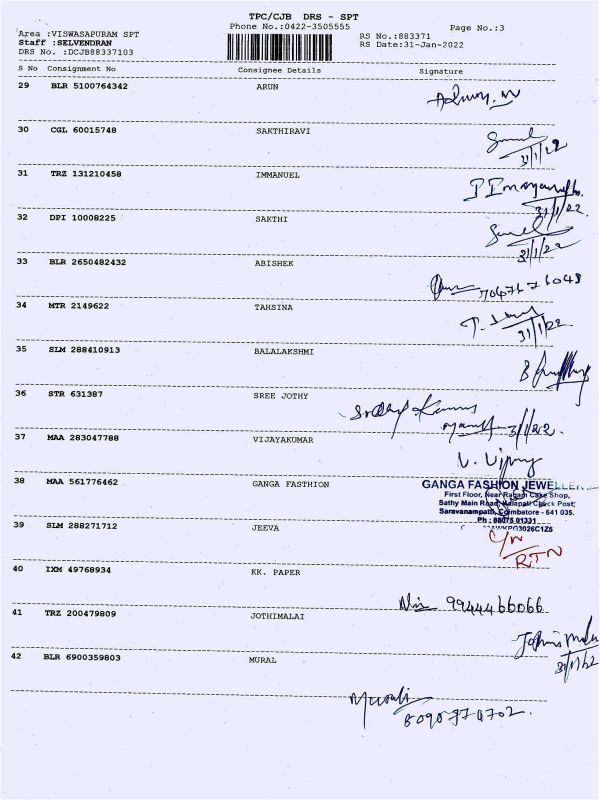 TPC/CJB DRS - SPT
Phone No.:0422-3505555
Page No.:3
Area :VISWASAPURAM SPT
Staff :SELVENDRAN
DRS No. :DCJB88337103
RS No.:883371
RS Date:31-Jan-2022
S No Consignment No Consignee Details Signature
29 BLR 5100764342 ARUN
30 CGL 60015748 SAKTHIRAVI
31/1/22
31 TRZ 131210458 IMMANUEL
31/1/22.
32 DPI 10008225 SAKTHI
31/1/22
33 BLR 2650482432 ABISHEK
34 MTR 2149622 TAHSINA
31/1/22
35 SLM 288410913 BALALAKSHMI
36 STR 631387 SREE JOTHY
37 MAA 283047788 VIJAYAKUMAR
V. Vijay
38 MAA 561776462 GANGA FASTHION
GANGA FASHION JEWELLE
First Floor, Near Ragam Cake Shop,
Sathy Main Road, Kalapati Check Post,
Saravanampath, Coimbatore - 641 035.
Ph : 88075 01331
39 SLM 288271712 JEEVA
C/N
RTN
40 IXM 49768934 KK. PAPER
9944466066
41 TRZ 200479809 JOTHIMALAI
31/1/22
42 BLR 6900359803 MURAL
Murali